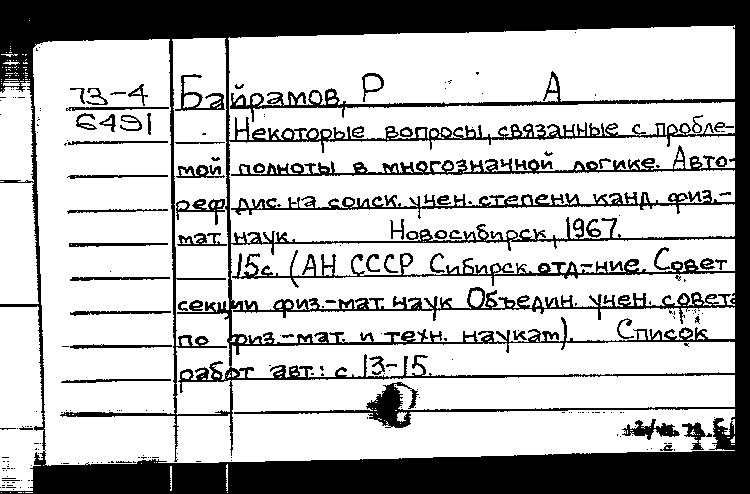 73-4 Байрамов, Р А
6491 Некоторые вопросы, связанные с пробле-
мой полноты в многозначной логике. Авто-
реф дис. на соиск. учен. степени канд. физ.-
мат. наук. Новосибирск, 1967.
15с. (АН СССР Сибирск. отд-ние. Совет
секции физ.-мат. наук Объедин. учен. совета
по физ.-мат. и техн. наукам). Список
работ авт.: с. 13-15.